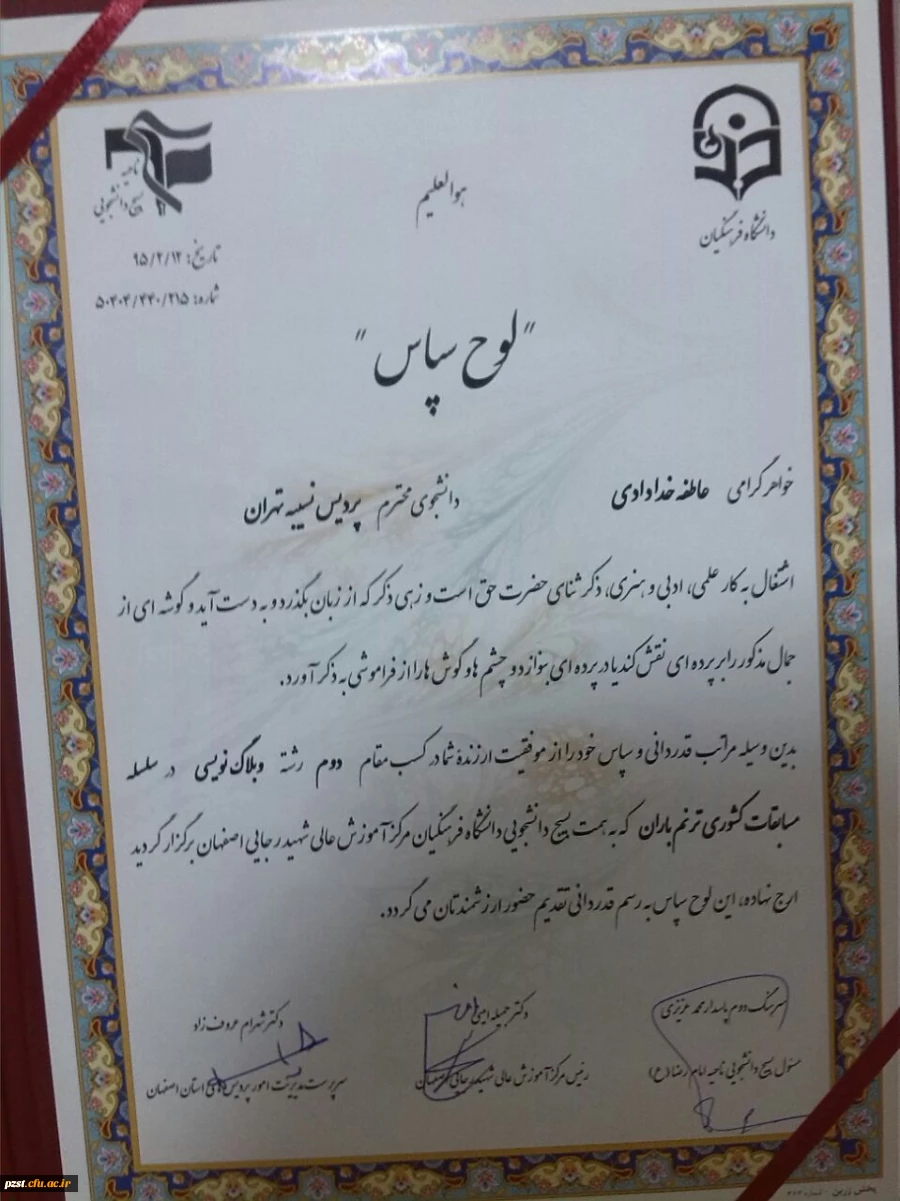 هوالعلیم
دانشگاه فرهنگیان
ناحیه
بسیج دانشجویی
تاریخ: ۹۵/۲/۱۲
شماره: ۵۰۴۰۴/۴۴۰/۲۱۵
"لوح سپاس"
خواهر گرامی عاطفه خدادادی دانشجوی محترم پردیس نسیبه تهران
اشتغال به کار علمی، ادبی و هنری، ذکر ثنای حضرت حق است و زهی ذکر که از زبان بگذرد و به دست آید و گوشه ای از
جمال مذکور را بر پرده ای نقش کند یا در پرده ای بنوازد و چشم ها و گوش ها را از فراموشی به ذکر آورد.
بدین وسیله مراتب قدردانی و سپاس خود را از موفقیت ارزندۀ شما در کسب مقام دوم رشته وبلاگ نویسی در سلسله
مسابقات کشوری ترنم باران که به همت بسیج دانشجویی دانشگاه فرهنگیان مرکز آموزش عالی شهید رجایی اصفهان برگزار گردید
ارج نهاده، این لوح سپاس به رسم قدردانی تقدیم حضور ارزشمندتان می گردد.
سرهنگ دوم پاسدار محمد عزیزی
مسئول بسیج دانشجویی ناحیه امام رضا (ع)
دکتر جمیله
رئیس مرکز آموزش عالی شهید رجایی اصفهان
دکتر شهرام عروف زاد
سرپرست مدیریت امور پردیس های استان اصفهان
pzst.cfu.ac.ir